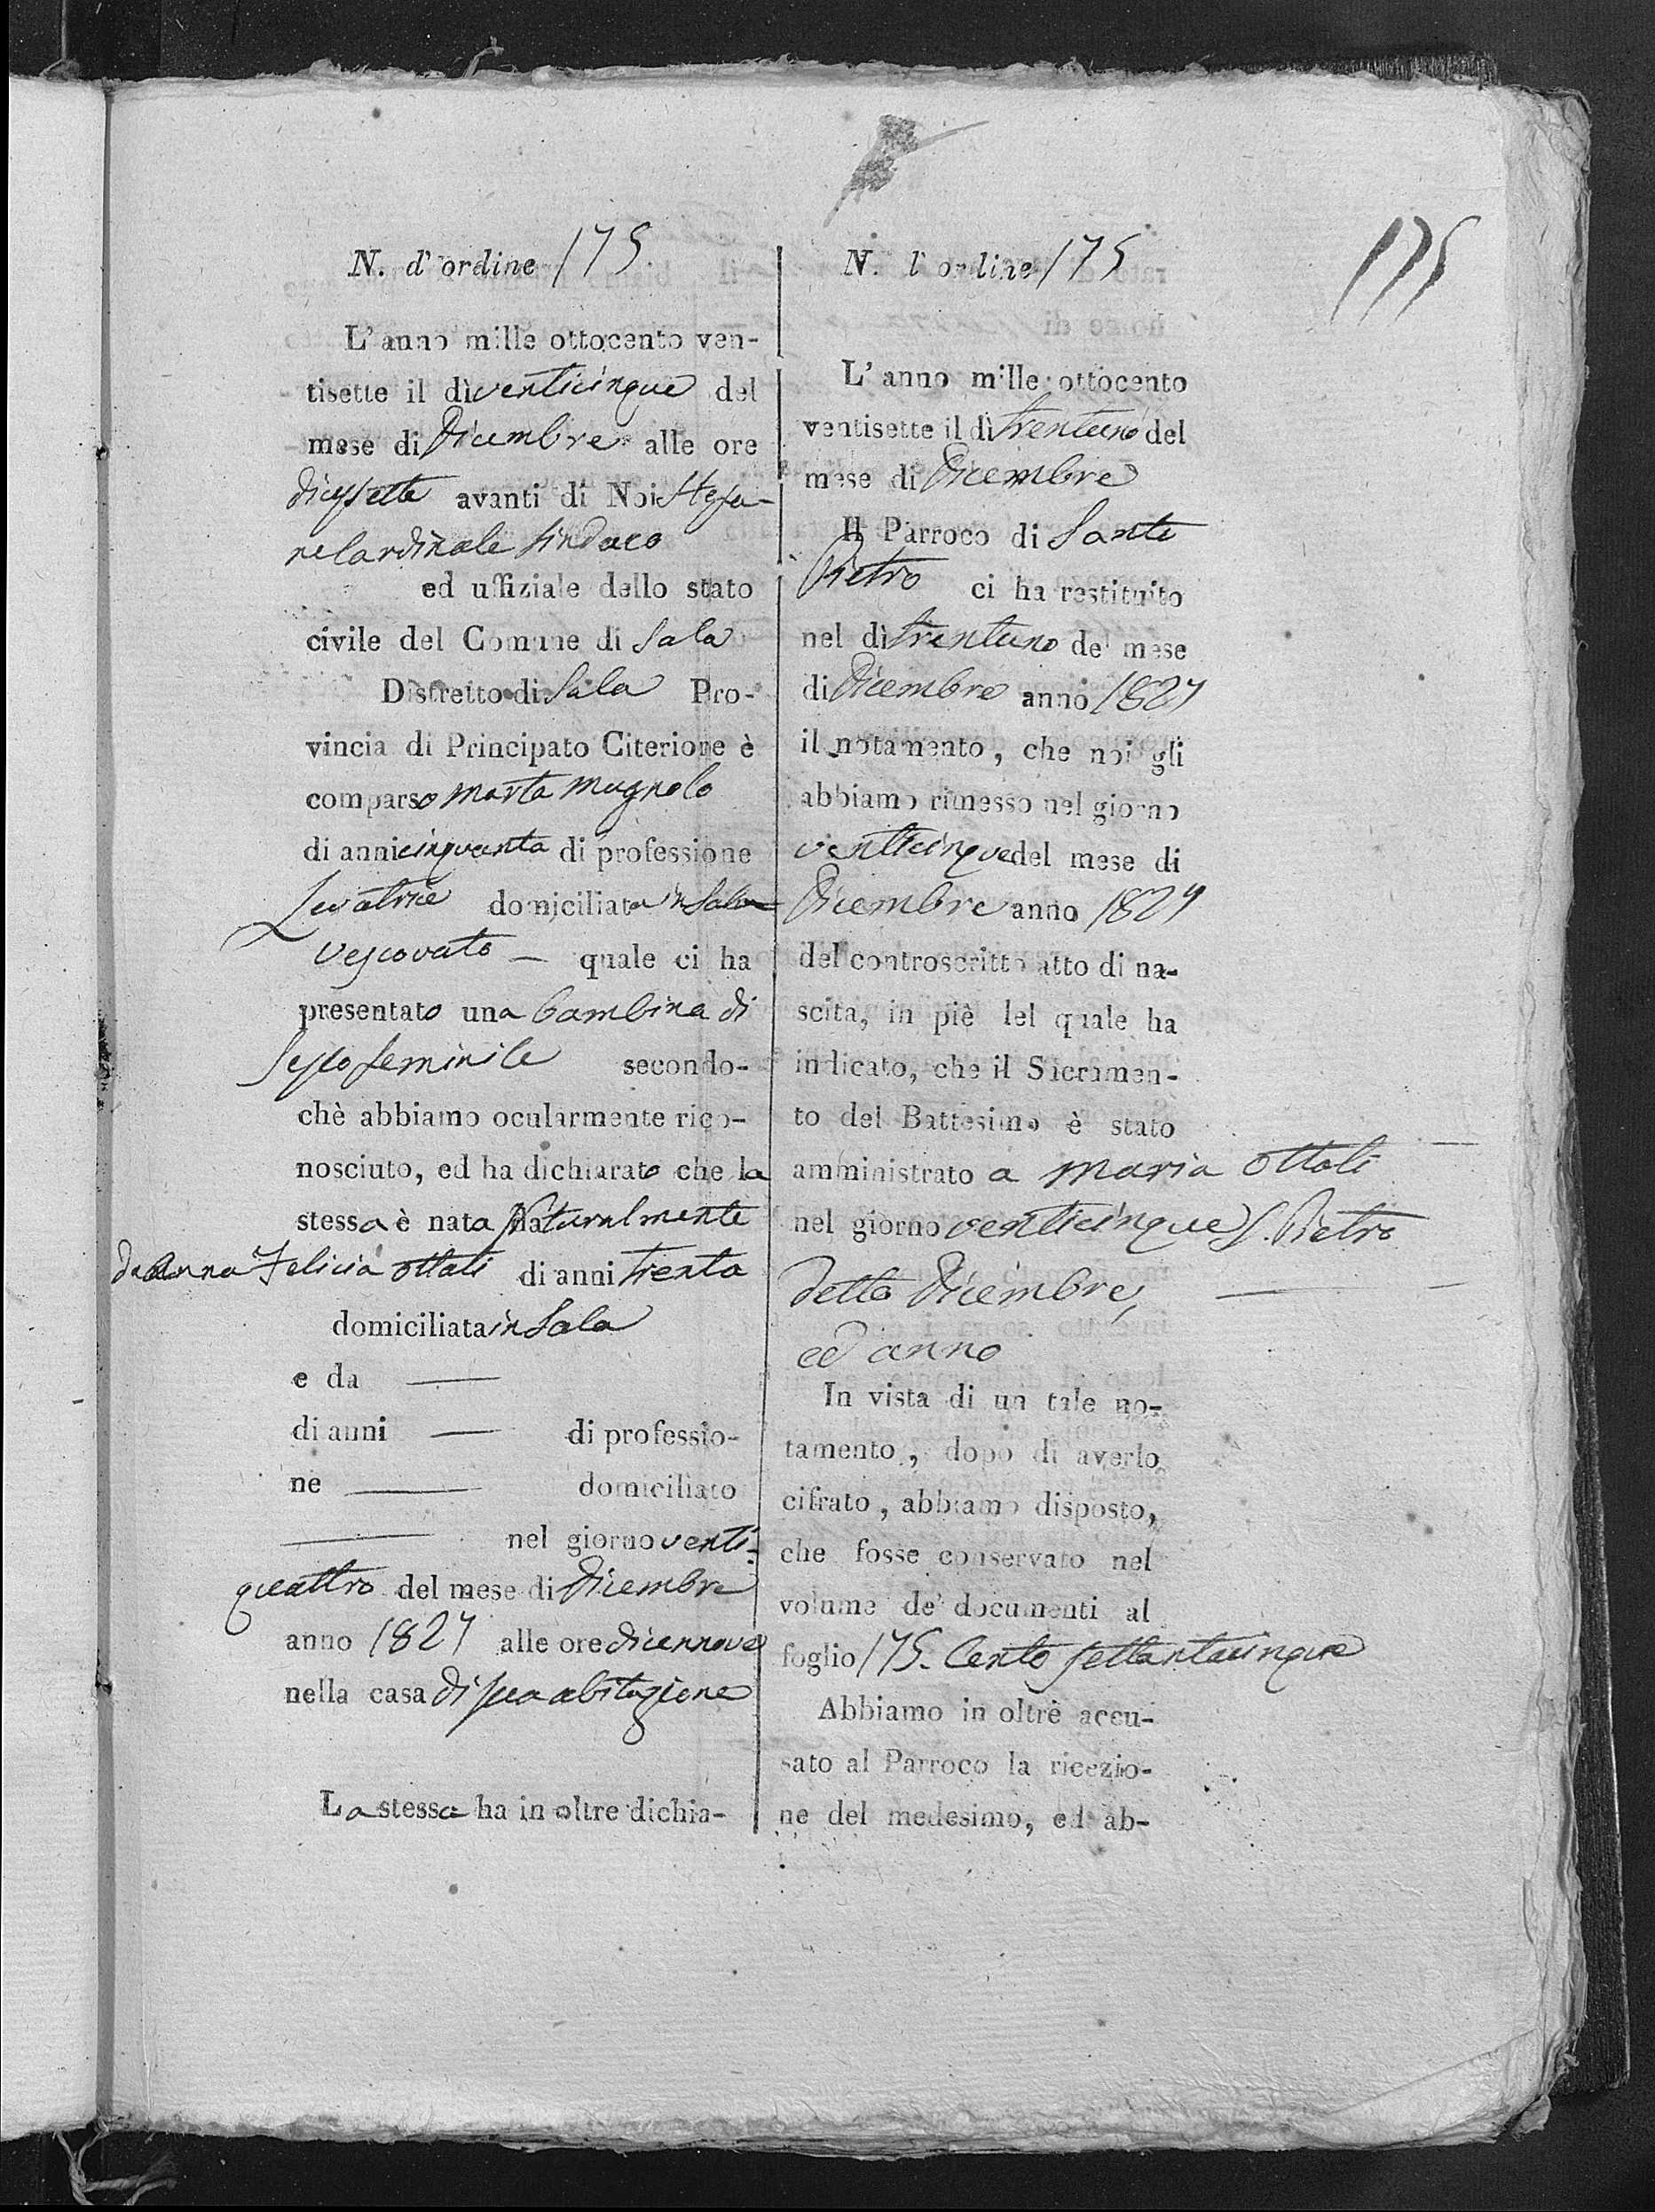 175
N. d'ordine 175.
L'anno mille ottocento ven-
tisette il dì venticinque del
mese di Dicembre alle ore
diessette avanti di Noi Stefa-
ne Cardinale Sindaco
ed uffiziale dello stato
civile del Comune di Sala
Distretto di Sala Pro-
vincia di Principato Citeriore è
comparso Marta Mugnolo
di anni cinquanta di professione
Levatrice domiciliata in Sala
Vescovato — quale ci ha
presentato una bambina di
sesso feminile secondo-
chè abbiamo ocularmente rico-
nosciuto, ed ha dichiarato che la
stessa è nata Naturalmente
da Anna Felicia Ottati di anni trenta
domiciliata in Sala
e da —
di anni — di professio-
ne — domiciliato
— nel giorno venti-
quattro del mese di Dicembre
anno 1827 alle ore dicennove
nella casa di sua abitazione
La stessa ha in oltre dichia-
N. d'ordine 175
L'anno mille ottocento
ventisette il dì trentuno del
mese di Dicembre
Il Parroco di Sante
Pietro ci ha restituito
nel dì trentuno del mese
di Dicembre anno 1827
il notamento, che noi gli
abbiamo rimesso nel giorno
venticinque del mese di
Dicembre anno 1827
del controscritto atto di na-
scita, in piè del quale ha
indicato, che il Sacramen-
to del Battesimo è stato
amministrato a Maria Ottati
nel giorno venticinque S. Pietro
detto Dicembre,
ed anno
In vista di un tale no-
tamento, dopo di averlo
cifrato, abbiamo disposto,
che fosse conservato nel
volume de' documenti al
foglio 175. Cento settantacinque
Abbiamo in oltre accu-
sato al Parroco la ricezio-
ne del medesimo, ed ab-